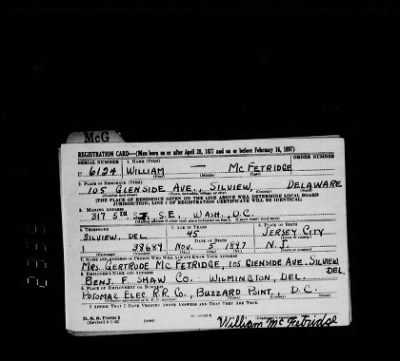 McG
REGISTRATION CARD—(Men born on or after April 28, 1877 and on or before February 16, 1897)
SERIAL NUMBER 1. NAME (Print) ORDER NUMBER
U 6124 WILLIAM — MCFETRIDGE
2. PLACE OF RESIDENCE (Print)
105 GLENSIDE AVE., SILVIEW, DELAWARE
(THE PLACE OF RESIDENCE GIVEN ON THE LINE ABOVE WILL DETERMINE LOCAL BOARD
JURISDICTION; LINE 2 OF REGISTRATION CERTIFICATE WILL BE IDENTICAL)
3. MAILING ADDRESS
317 5TH ST. S.E., WASH., D.C.
4. TELEPHONE 5. AGE IN YEARS 6. PLACE OF BIRTH
SILVIEW, DEL 45 JERSEY CITY
DATE OF BIRTH
38684 NOV. 5 1897 N.J.
7. NAME AND ADDRESS OF PERSON WHO WILL ALWAYS KNOW YOUR ADDRESS
MRS. GERTRUDE MCFETRIDGE, 105 GLENSIDE AVE. SILVIEW DEL
8. EMPLOYER'S NAME AND ADDRESS
BENJ. F. SHAW CO. WILMINGTON, DEL.
9. PLACE OF EMPLOYMENT OR BUSINESS
POTOMAC ELEC R.R. CO., BUZZARD POINT, D.C.
I AFFIRM THAT I HAVE VERIFIED ABOVE ANSWERS AND THAT THEY ARE TRUE.
D. S. S. Form 1
William McFetridge